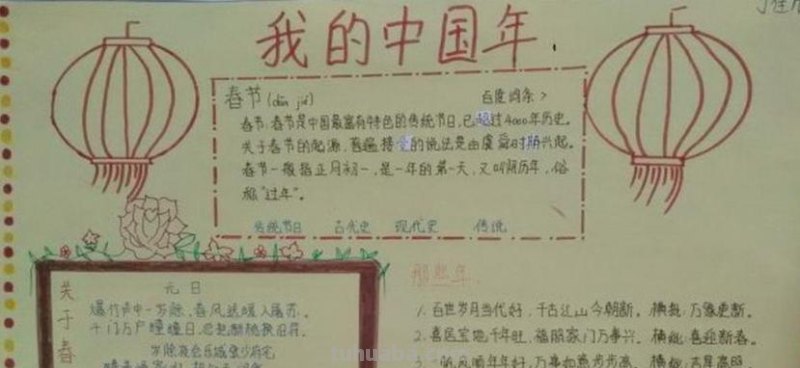 我的中国年
春节(chūn jié) 百度词条>
春节,春节是中国最富有特色的传统节日,已超过4000年历史。
关于春节的起源,普遍接受的说法是由虞舜时期兴起。
春节一般指正月初一,是一年的第一天,又叫阴历年,俗
称"过年"。
传统节日 古代史 现代史 传说
关于春
元日
爆竹声中一岁除,春风送暖入屠苏。
千门万户曈曈日,总把新桃换旧符。
那些年
1.百世岁月当代好,千古江山今朝新。横批:万象更新。
2.喜居宝地千年旺,福照家门万事兴。横批:喜迎新春。
3.一帆风顺年年好,万事如意步步高。横批:吉星高照
tuhuaba